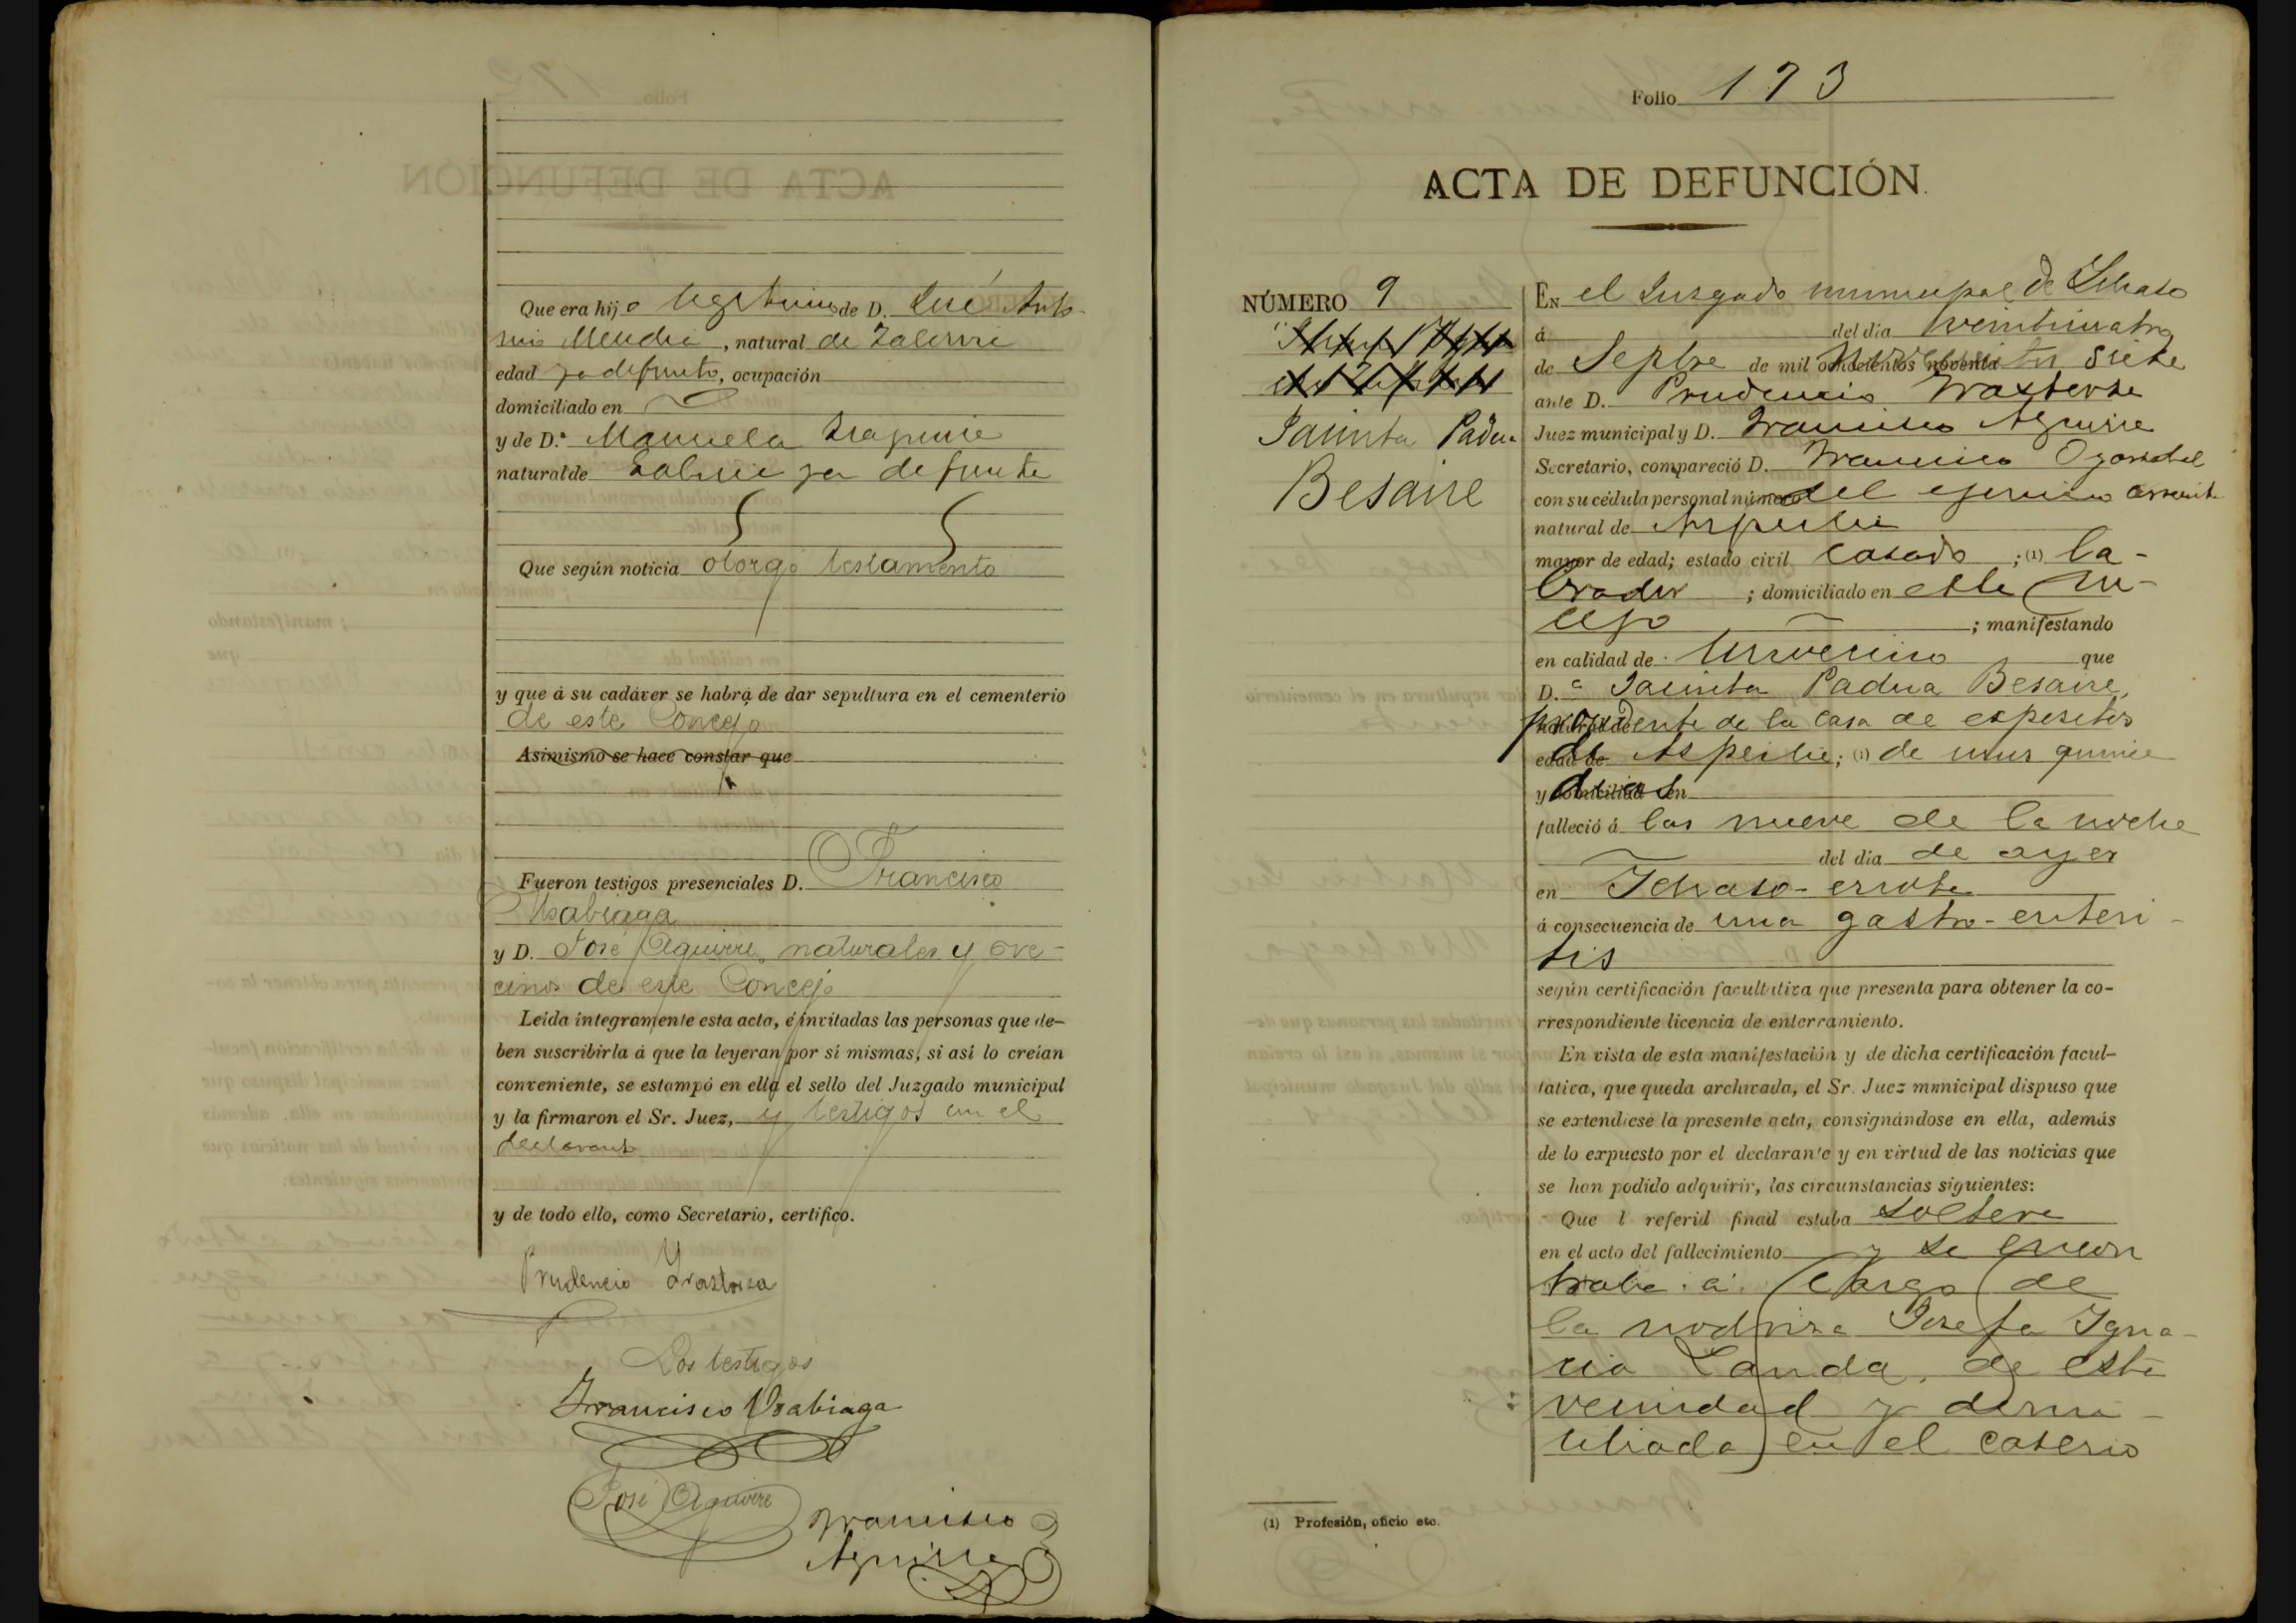 Que era hijo legitimo de D. José Anto-
nio Mendia, natural de Zaldivia
edad ya defunto, ocupación
domiciliado en
y de D.ª Manuela
natural de ya defunta
Que según noticia otorgó testamento
y que á su cadáver se habrá de dar sepultura en el cementerio
de este Concejo
Asimismo se hace constar que
Fueron testigos presenciales D. Francisco
Usabiaga
y D. José Aguirre, naturales y ve-
cinos de este Concejo
Leída íntegramente esta acta, é invitadas las personas que de-
ben suscribirla á que la leyeran por sí mismas, si así lo creían
conveniente, se estampó en ella el sello del Juzgado municipal
y la firmaron el Sr. Juez, y testigos con el
declarante
y de todo ello, como Secretario, certifico.
Prudencio Yraztorza
Los testigos
Francisco Usabiaga
José Aguirre
Francisco
Aguirre
Folio 173
ACTA DE DEFUNCIÓN.
NÚMERO 9
Jacinta Padua
Besaire
EN el Juzgado municipal de Ichaso
á del dia veinticuatro
de Septbre de mil novecientos siete
ante D. Prudencio Yraztorza
Juez municipal y D. Francisco Aguirre
Secretario, compareció D. Francisco
con su cédula personal número del ejercicio corriente
natural de Azpeitia
mayor de edad; estado civil casado ; (1) la-
brador ; domiciliado en este con-
cejo ; manifestando
en calidad de convecino que
D.ª Jacinta Padua Besaire,
procedente de la Casa de expositos
de Azpeitia; (1) de unos quince
dias
falleció á las nueve de la noche
del dia de ayer
en Ichaso-errota
á consecuencia de una gastro-enteri-
tis
según certificación facultativa que presenta para obtener la co-
rrespondiente licencia de enterramiento.
En vista de esta manifestación y de dicha certificación facul-
tativa, que queda archivada, el Sr. Juez municipal dispuso que
se extendiese la presente acta, consignándose en ella, además
de lo expuesto por el declarante y en virtud de las noticias que
se han podido adquirir, las circunstancias siguientes:
Que l referid finad estaba soltera
en el acto del fallecimiento y se encon
traba á cargo de
la nodriza Josefa Igna-
cia Landa, de esta
vecindad y domi-
ciliada en el caserio
(1) Profesión, oficio etc.